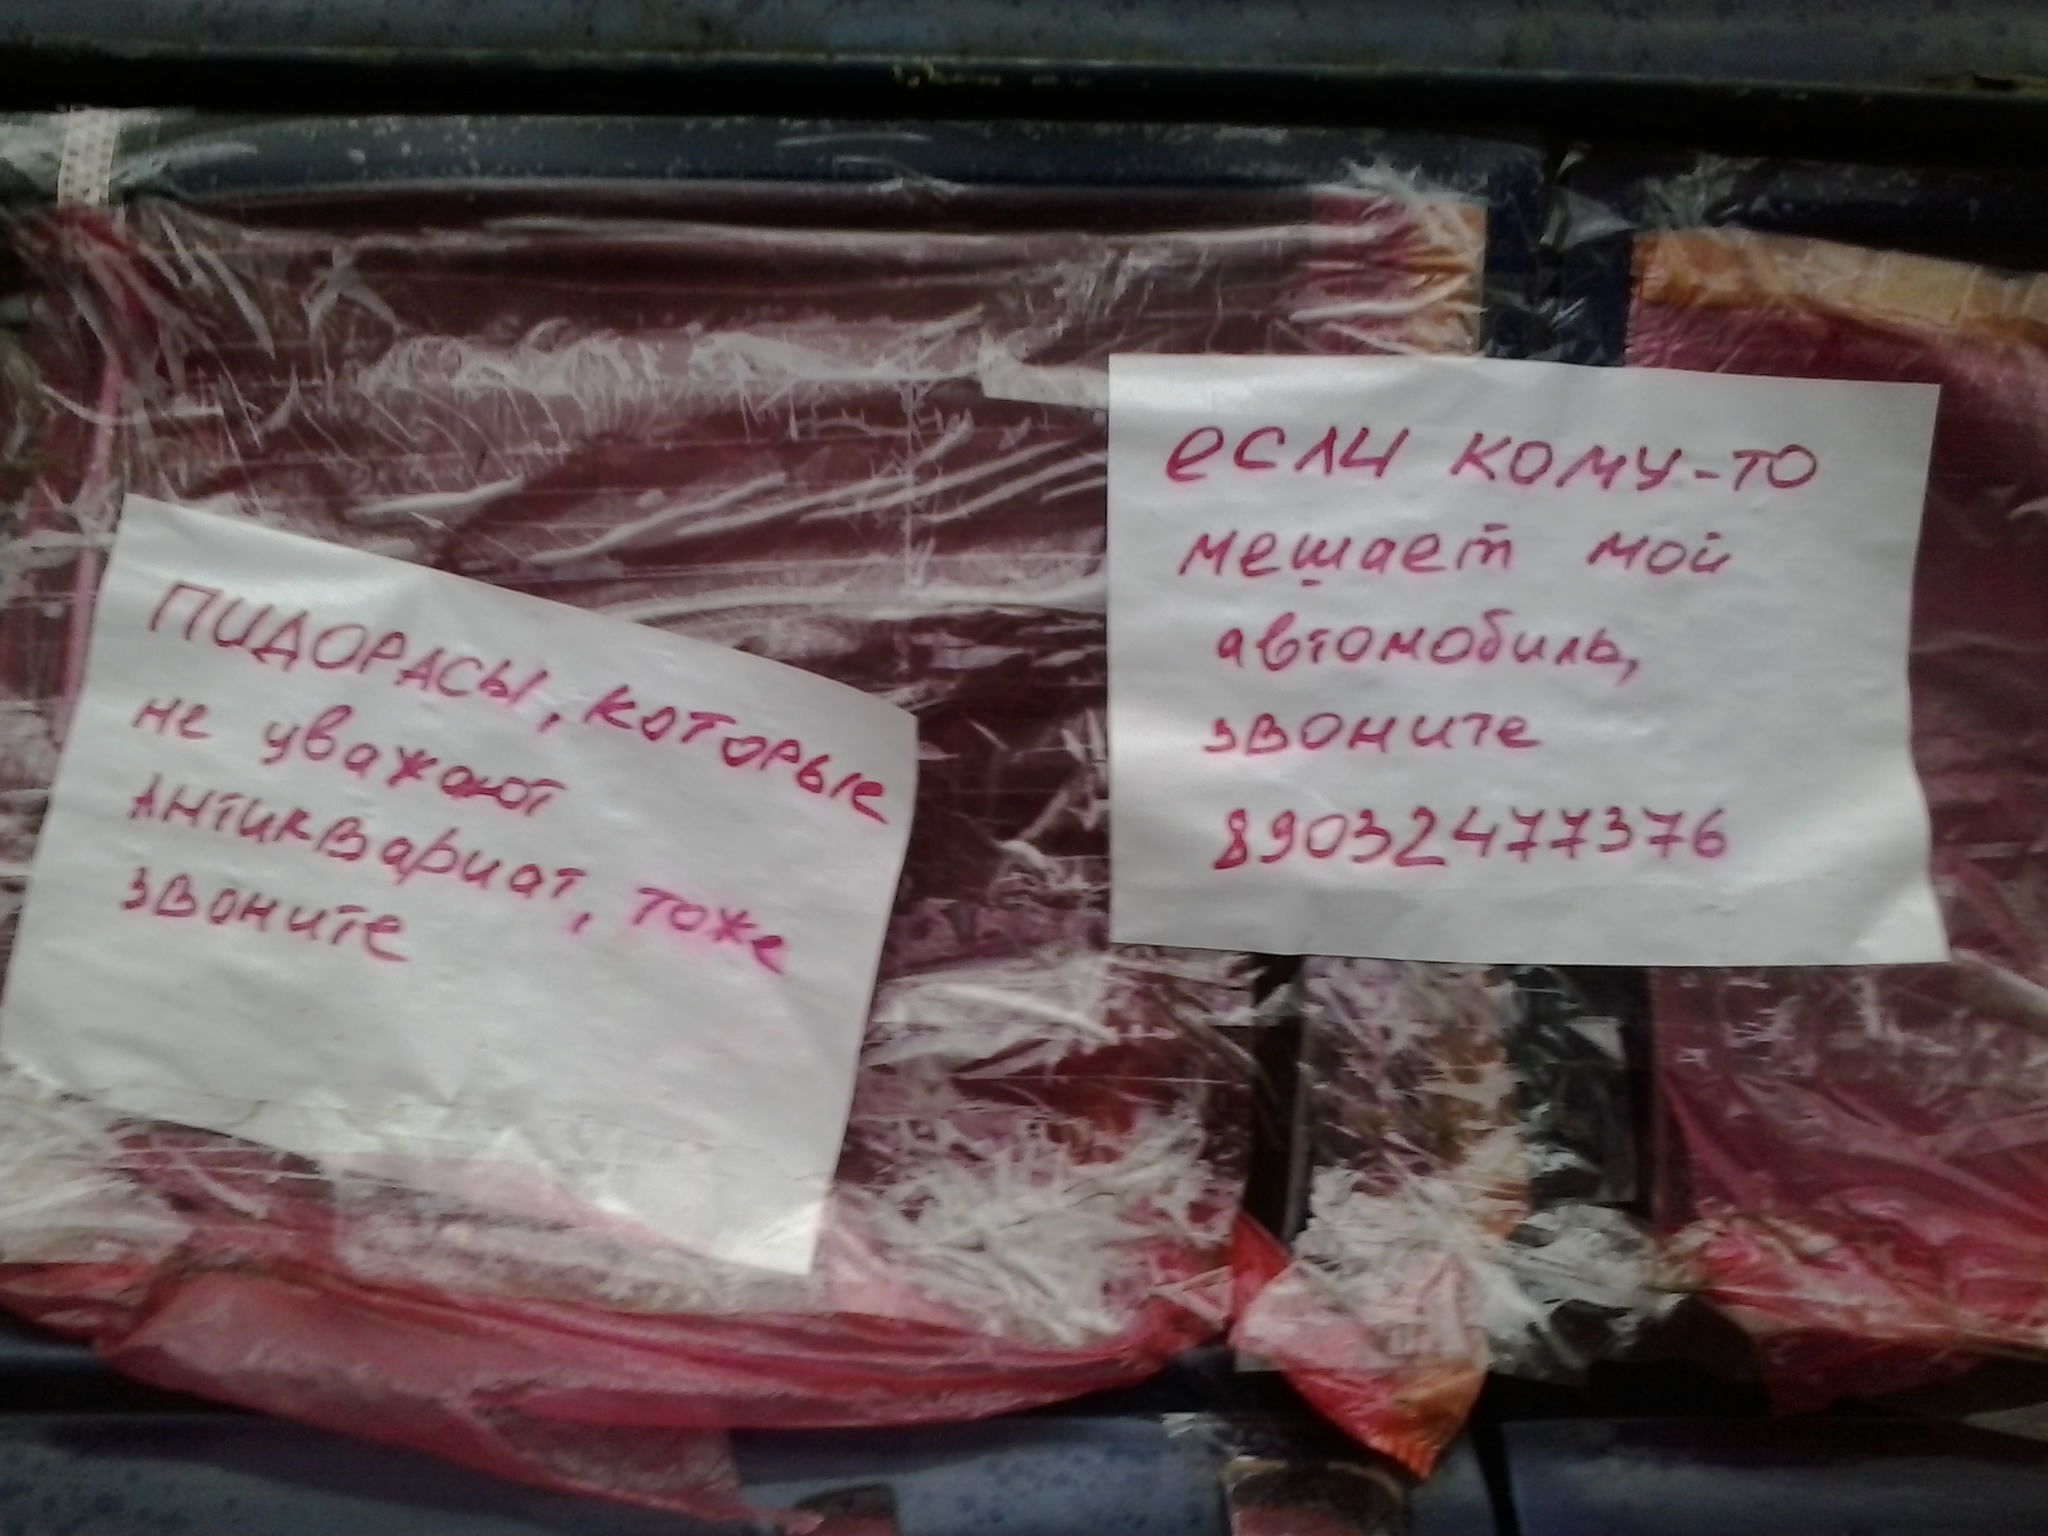 ПИДОРАСЫ, которые
не уважают
Антиквариат, тоже
звоните
если кому-то
мешает мой
автомобиль,
звоните
89032477376